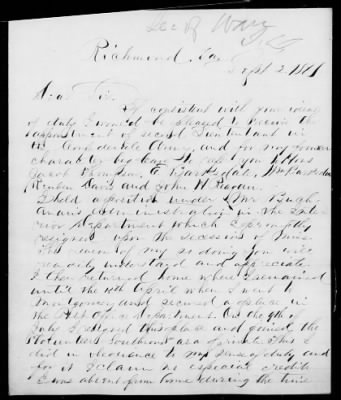 Sec of War
Richmond, Va
Sept 2, 1861
Dear Sir.
If consistent with your ideas
of duty I would be pleased to receive the
appointment of second Lieutenant in
the Confederate Army, and for my
character beg leave to refer you to Hons
Jacob Thompson,
Reuben Davis and John H Reagan.
I held a position under Mr Buch-
anan's administration in the Inter-
ior Department which I promptly
resigned upon the secession of Miss.
The reason of my so doing you will
readily understand and appreciate
I then returned home where I remained
until the 16th April when I went to
Montgomery and secured a place in
the Post Office Department. On the 9th of
July I resigned this place and joined the
Volunteer Southrons as a private. This I
did in obedience to my sense of duty and
for it I claim no especial credit.
I was absent from home during the time